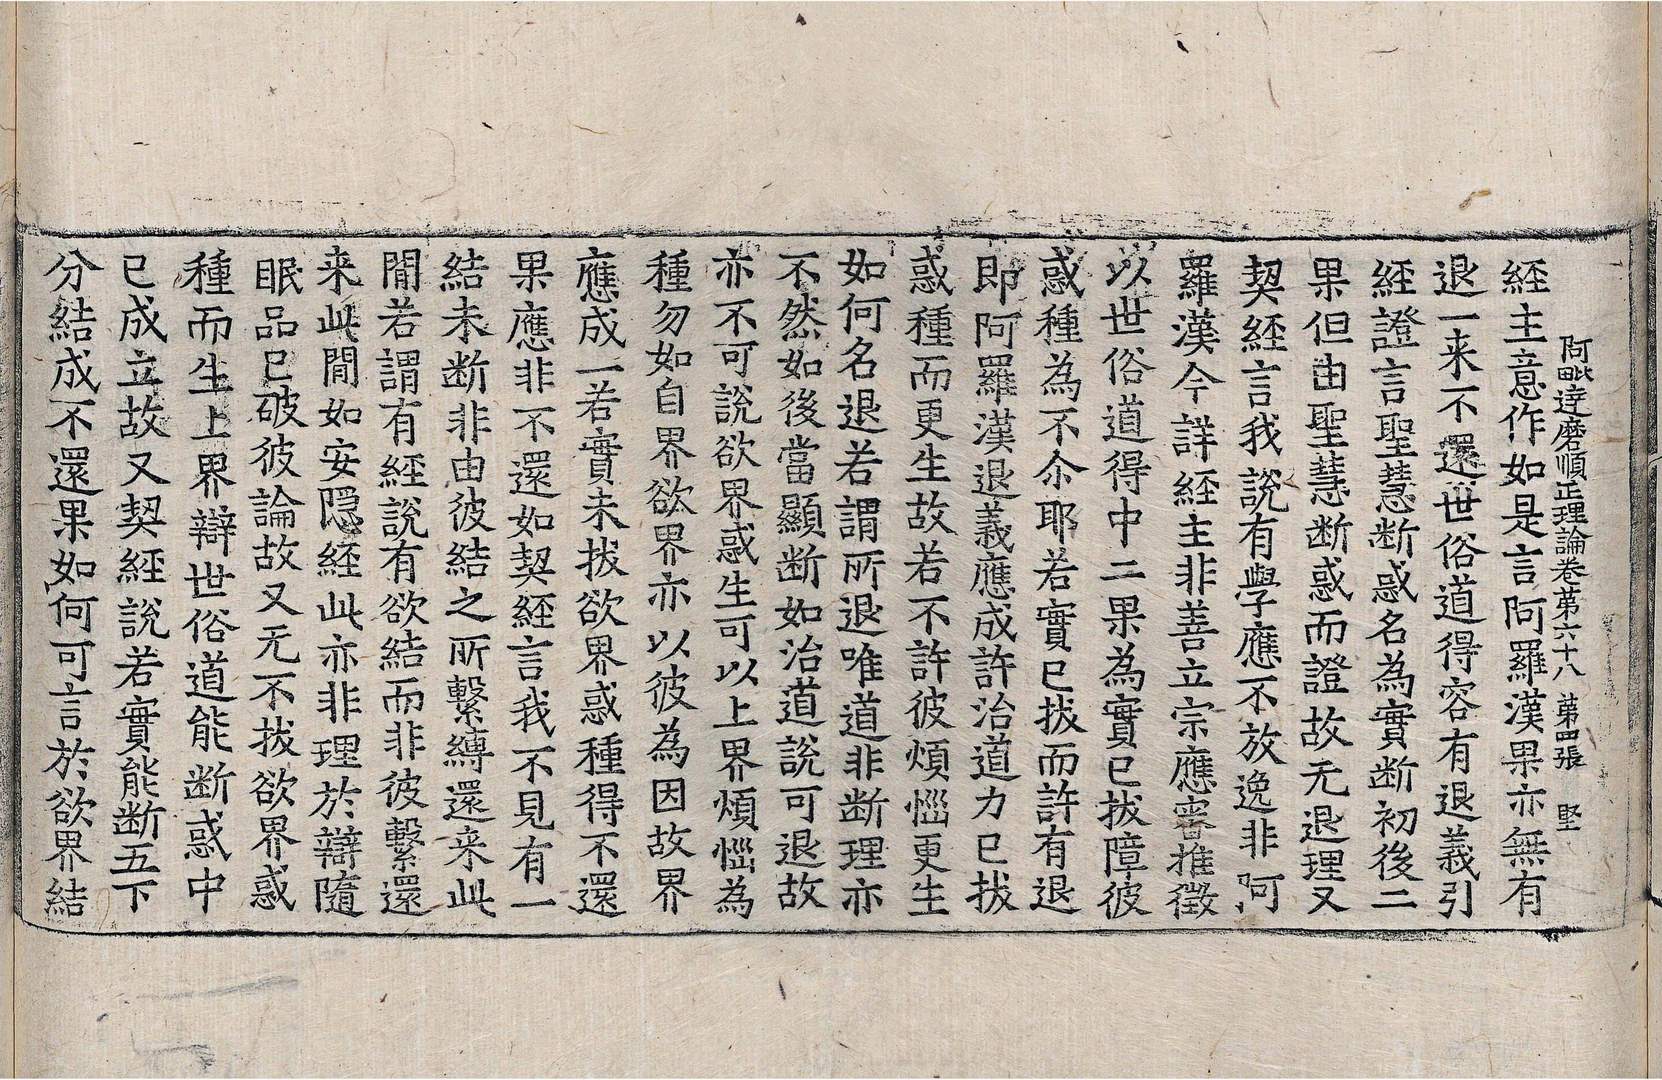 阿毗達磨順正理論卷第六十八 第四張 堅
經主意作如是言阿羅漢果亦無有
退一来不還世俗道得容有退義引
經證言聖慧断惑名為實断初後二
果但由聖慧断惑而證故无退理又
契經言我說有學應不放逸非阿
羅漢今詳經主非善立宗應審推徵
以世俗道得中二果為實已拔障彼
惑種為不尒耶若實已拔而許有退
即阿羅漢退義應成許治道力已拔
惑種而更生故若不許彼煩惱更生
如何名退若謂所退唯道非断理亦
不然如後當顯断如治道說可退故
亦不可說欲界惑生可以上界煩惱為
種勿如自界欲界亦以彼為因故界
應成一若實未拔欲界惑種得不還
果應非不還如契經言我不見有一
結未断非由彼結之所繫縛還来此
間若謂有經說有欲結而非彼繫還
来此間如安隱經此亦非理於辯隨
眠品已破彼論故又无不拔欲界惑
種而生上界辯世俗道能断惑中
已成立故又契經說若實能断五下
分結成不還果如何可言於欲界結